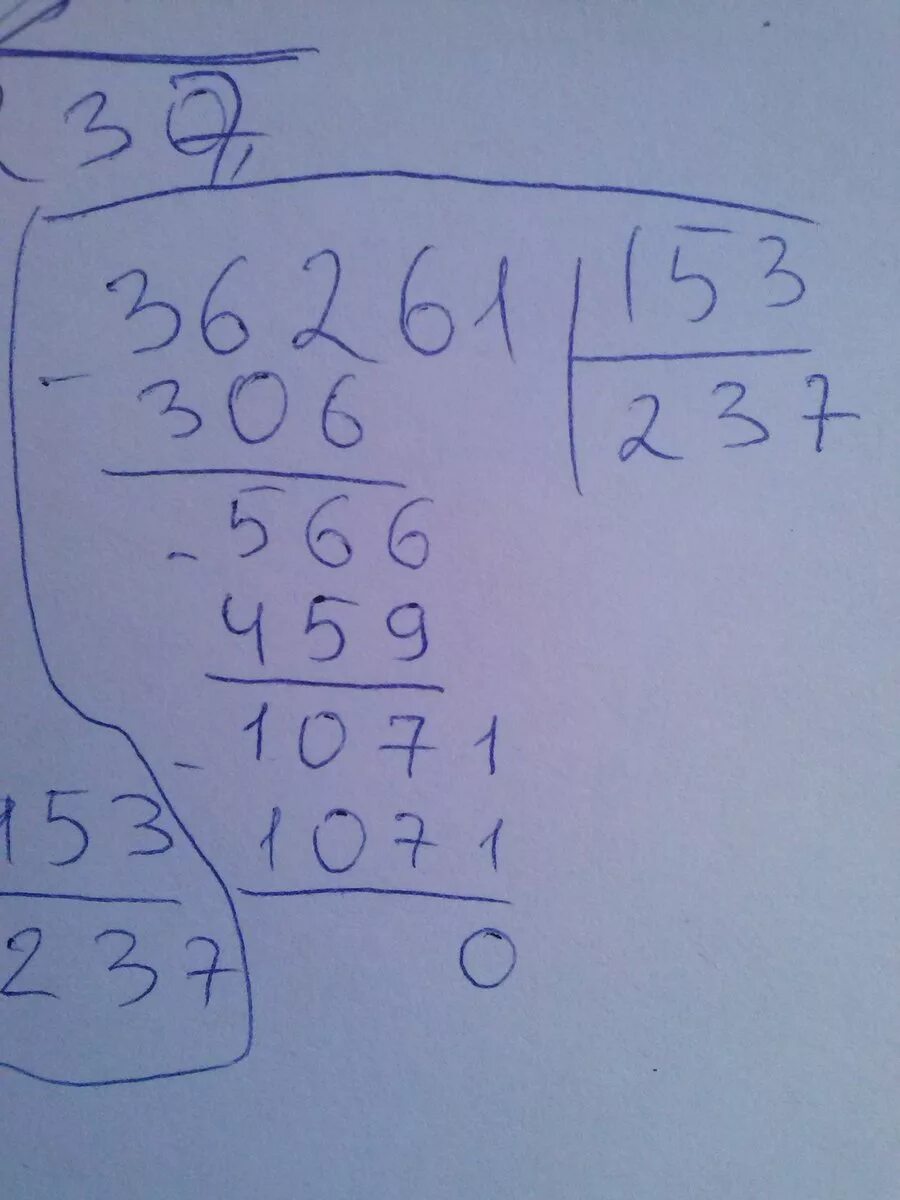 37,
36261 | 153
- 306 | 237
- 566
459
- 1071
1071
0
153
237